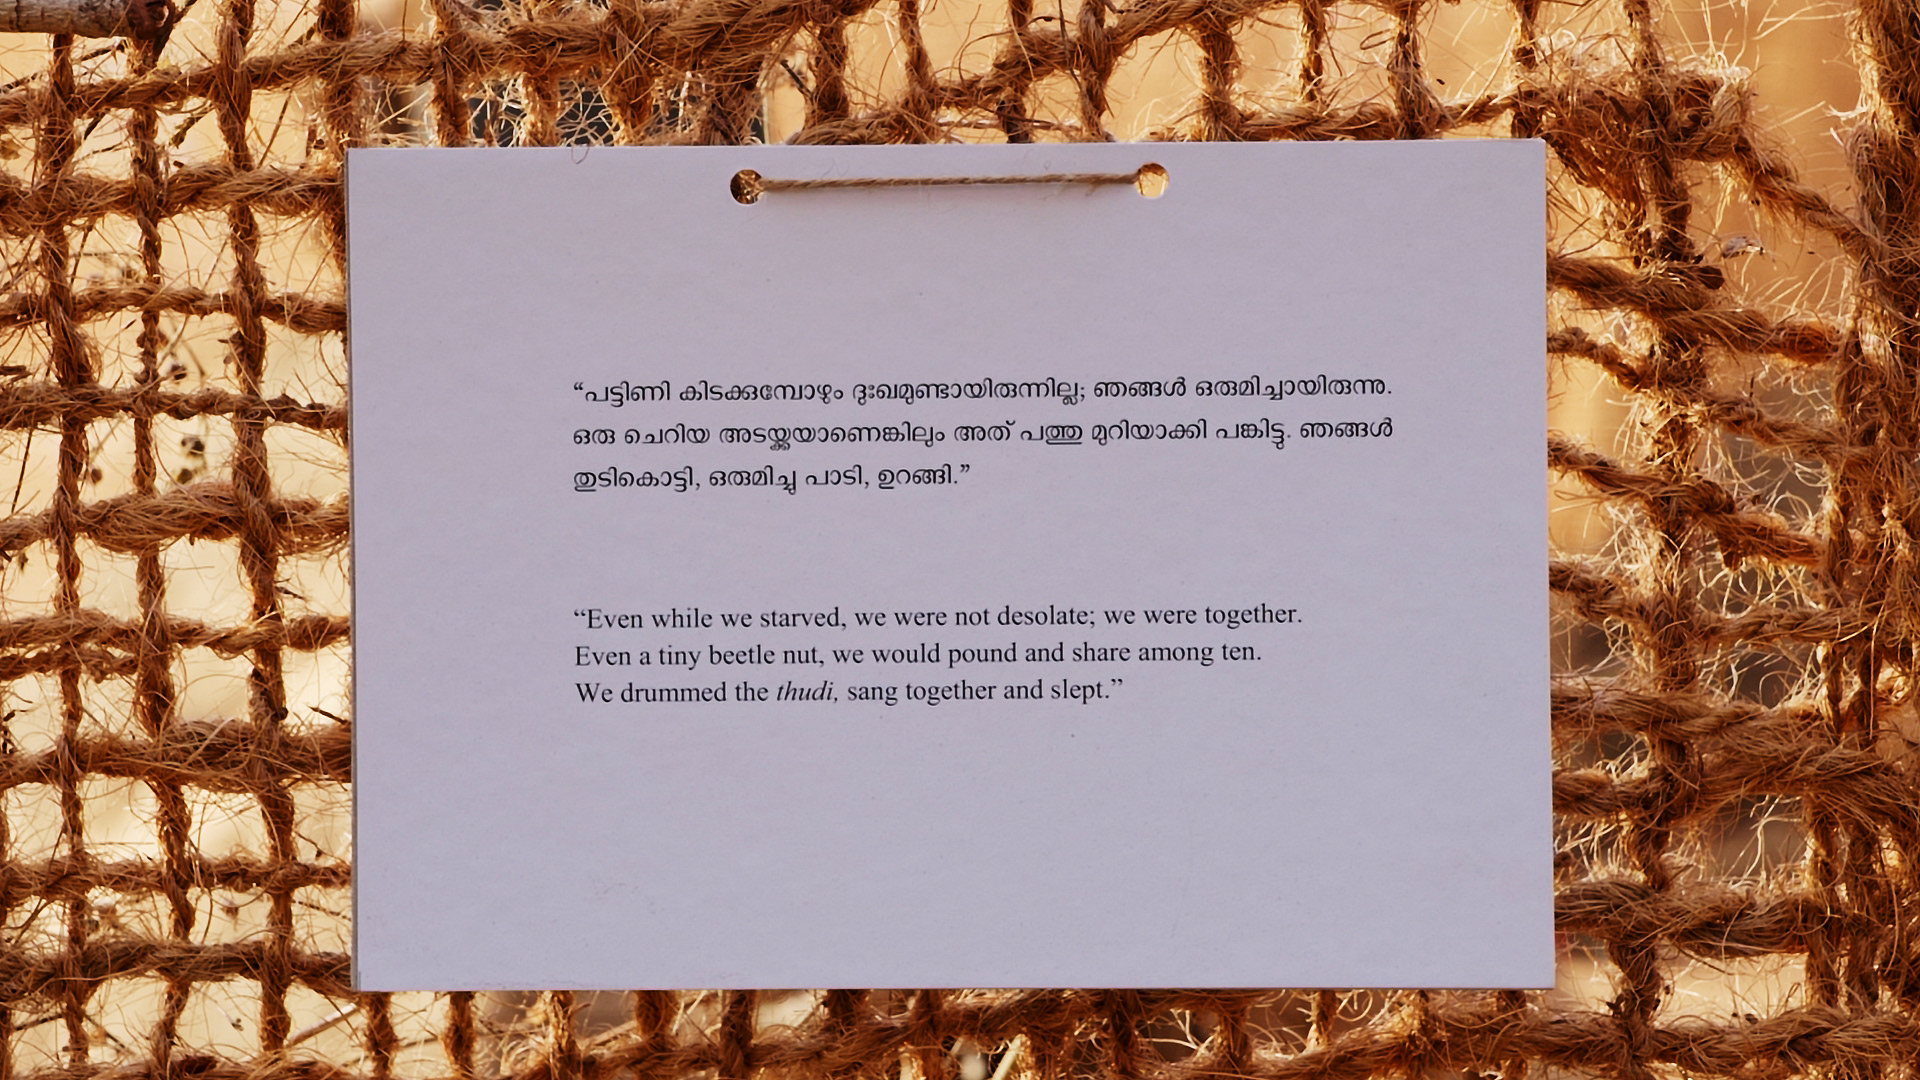 “പട്ടിണി കിടക്കുമ്പോഴും ദുഃഖമുണ്ടായിരുന്നില്ല; ഞങ്ങൾ ഒരുമിച്ചായിരുന്നു.
ഒരു ചെറിയ അടയ്ക്കയാണെങ്കിലും അത് പത്തു മുറിയാക്കി പങ്കിട്ടു. ഞങ്ങൾ
തുടികൊട്ടി, ഒരുമിച്ചു പാടി, ഉറങ്ങി.”
“Even while we starved, we were not desolate; we were together.
Even a tiny beetle nut, we would pound and share among ten.
We drummed the thudi, sang together and slept.”